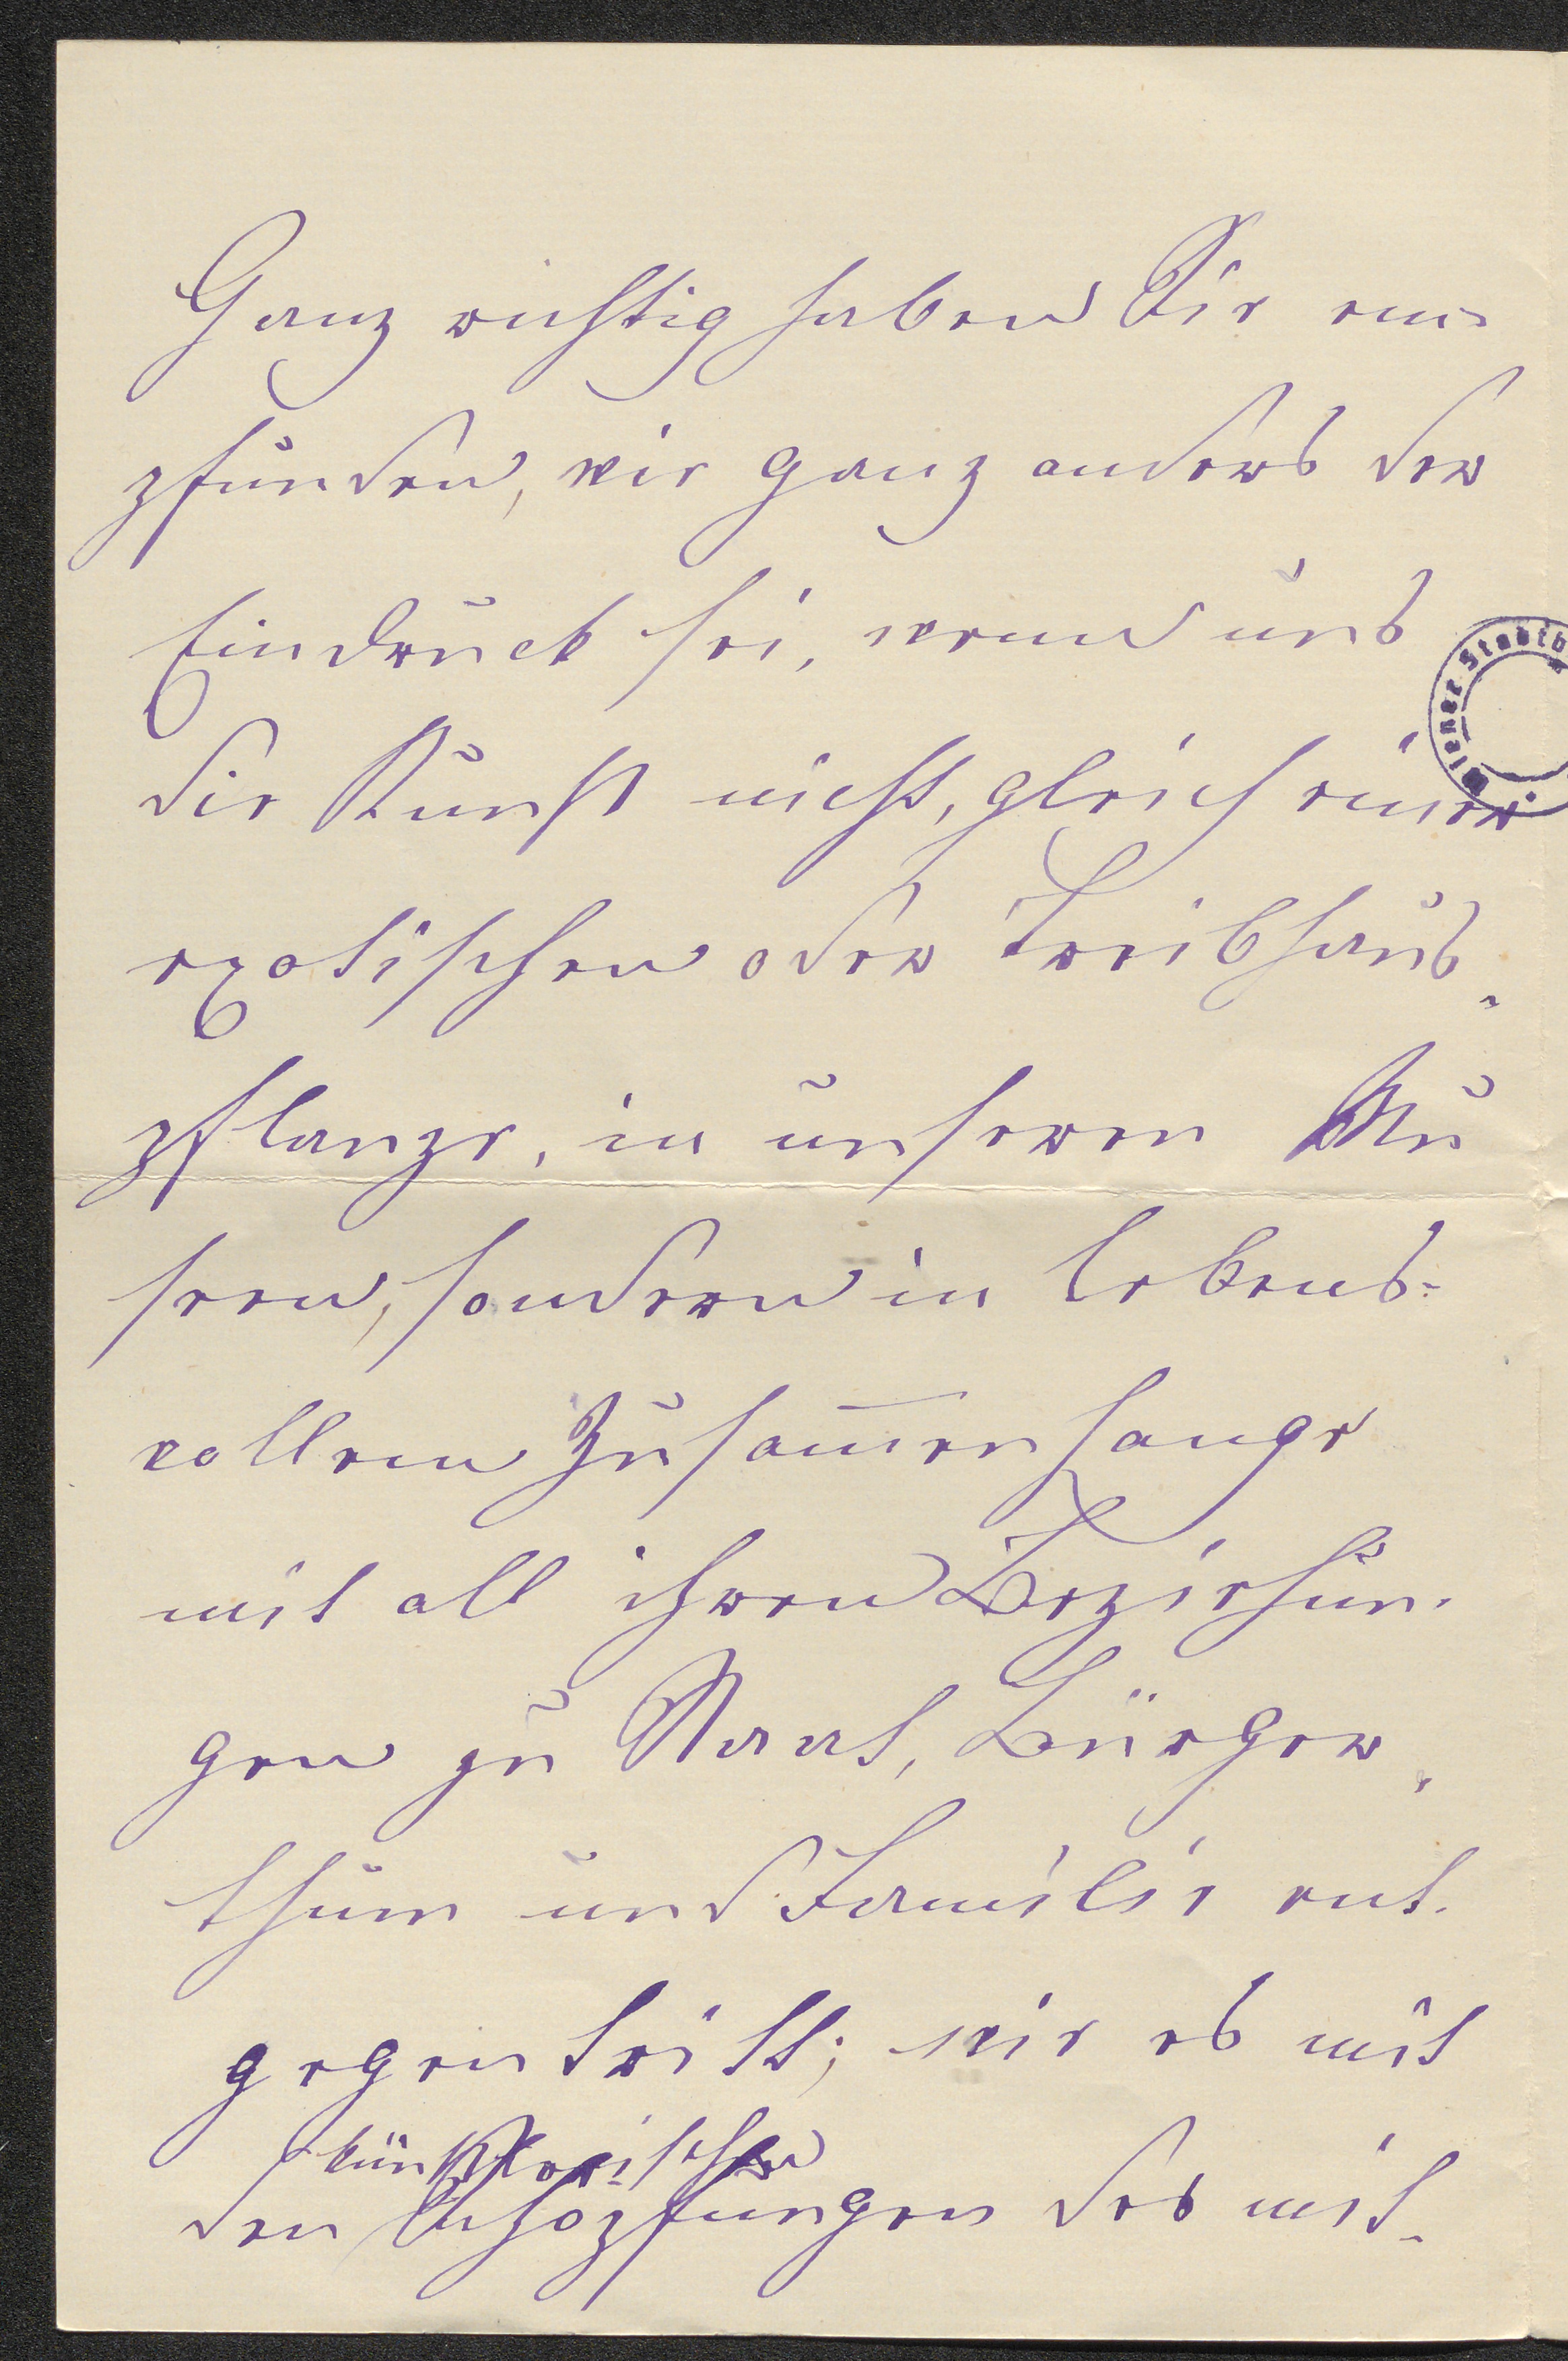 Ganz richtig haben Sie em-
pfunden, wie ganz anders der
Eindruck sei, wenn uns
die Kunst nicht, gleich einer
exotischen oder Treibhaus-
pflanze, in unseren Mu
seen, sondern in lebens-
vollem Zusam̅enhange
mit all ihren Beziehun-
gen zu Staat, Bürger-
thum und Familie ent-
gegentritt; wie es mit
künstlerischen
den Schöpfungen des mit-
Wiener Stadtb